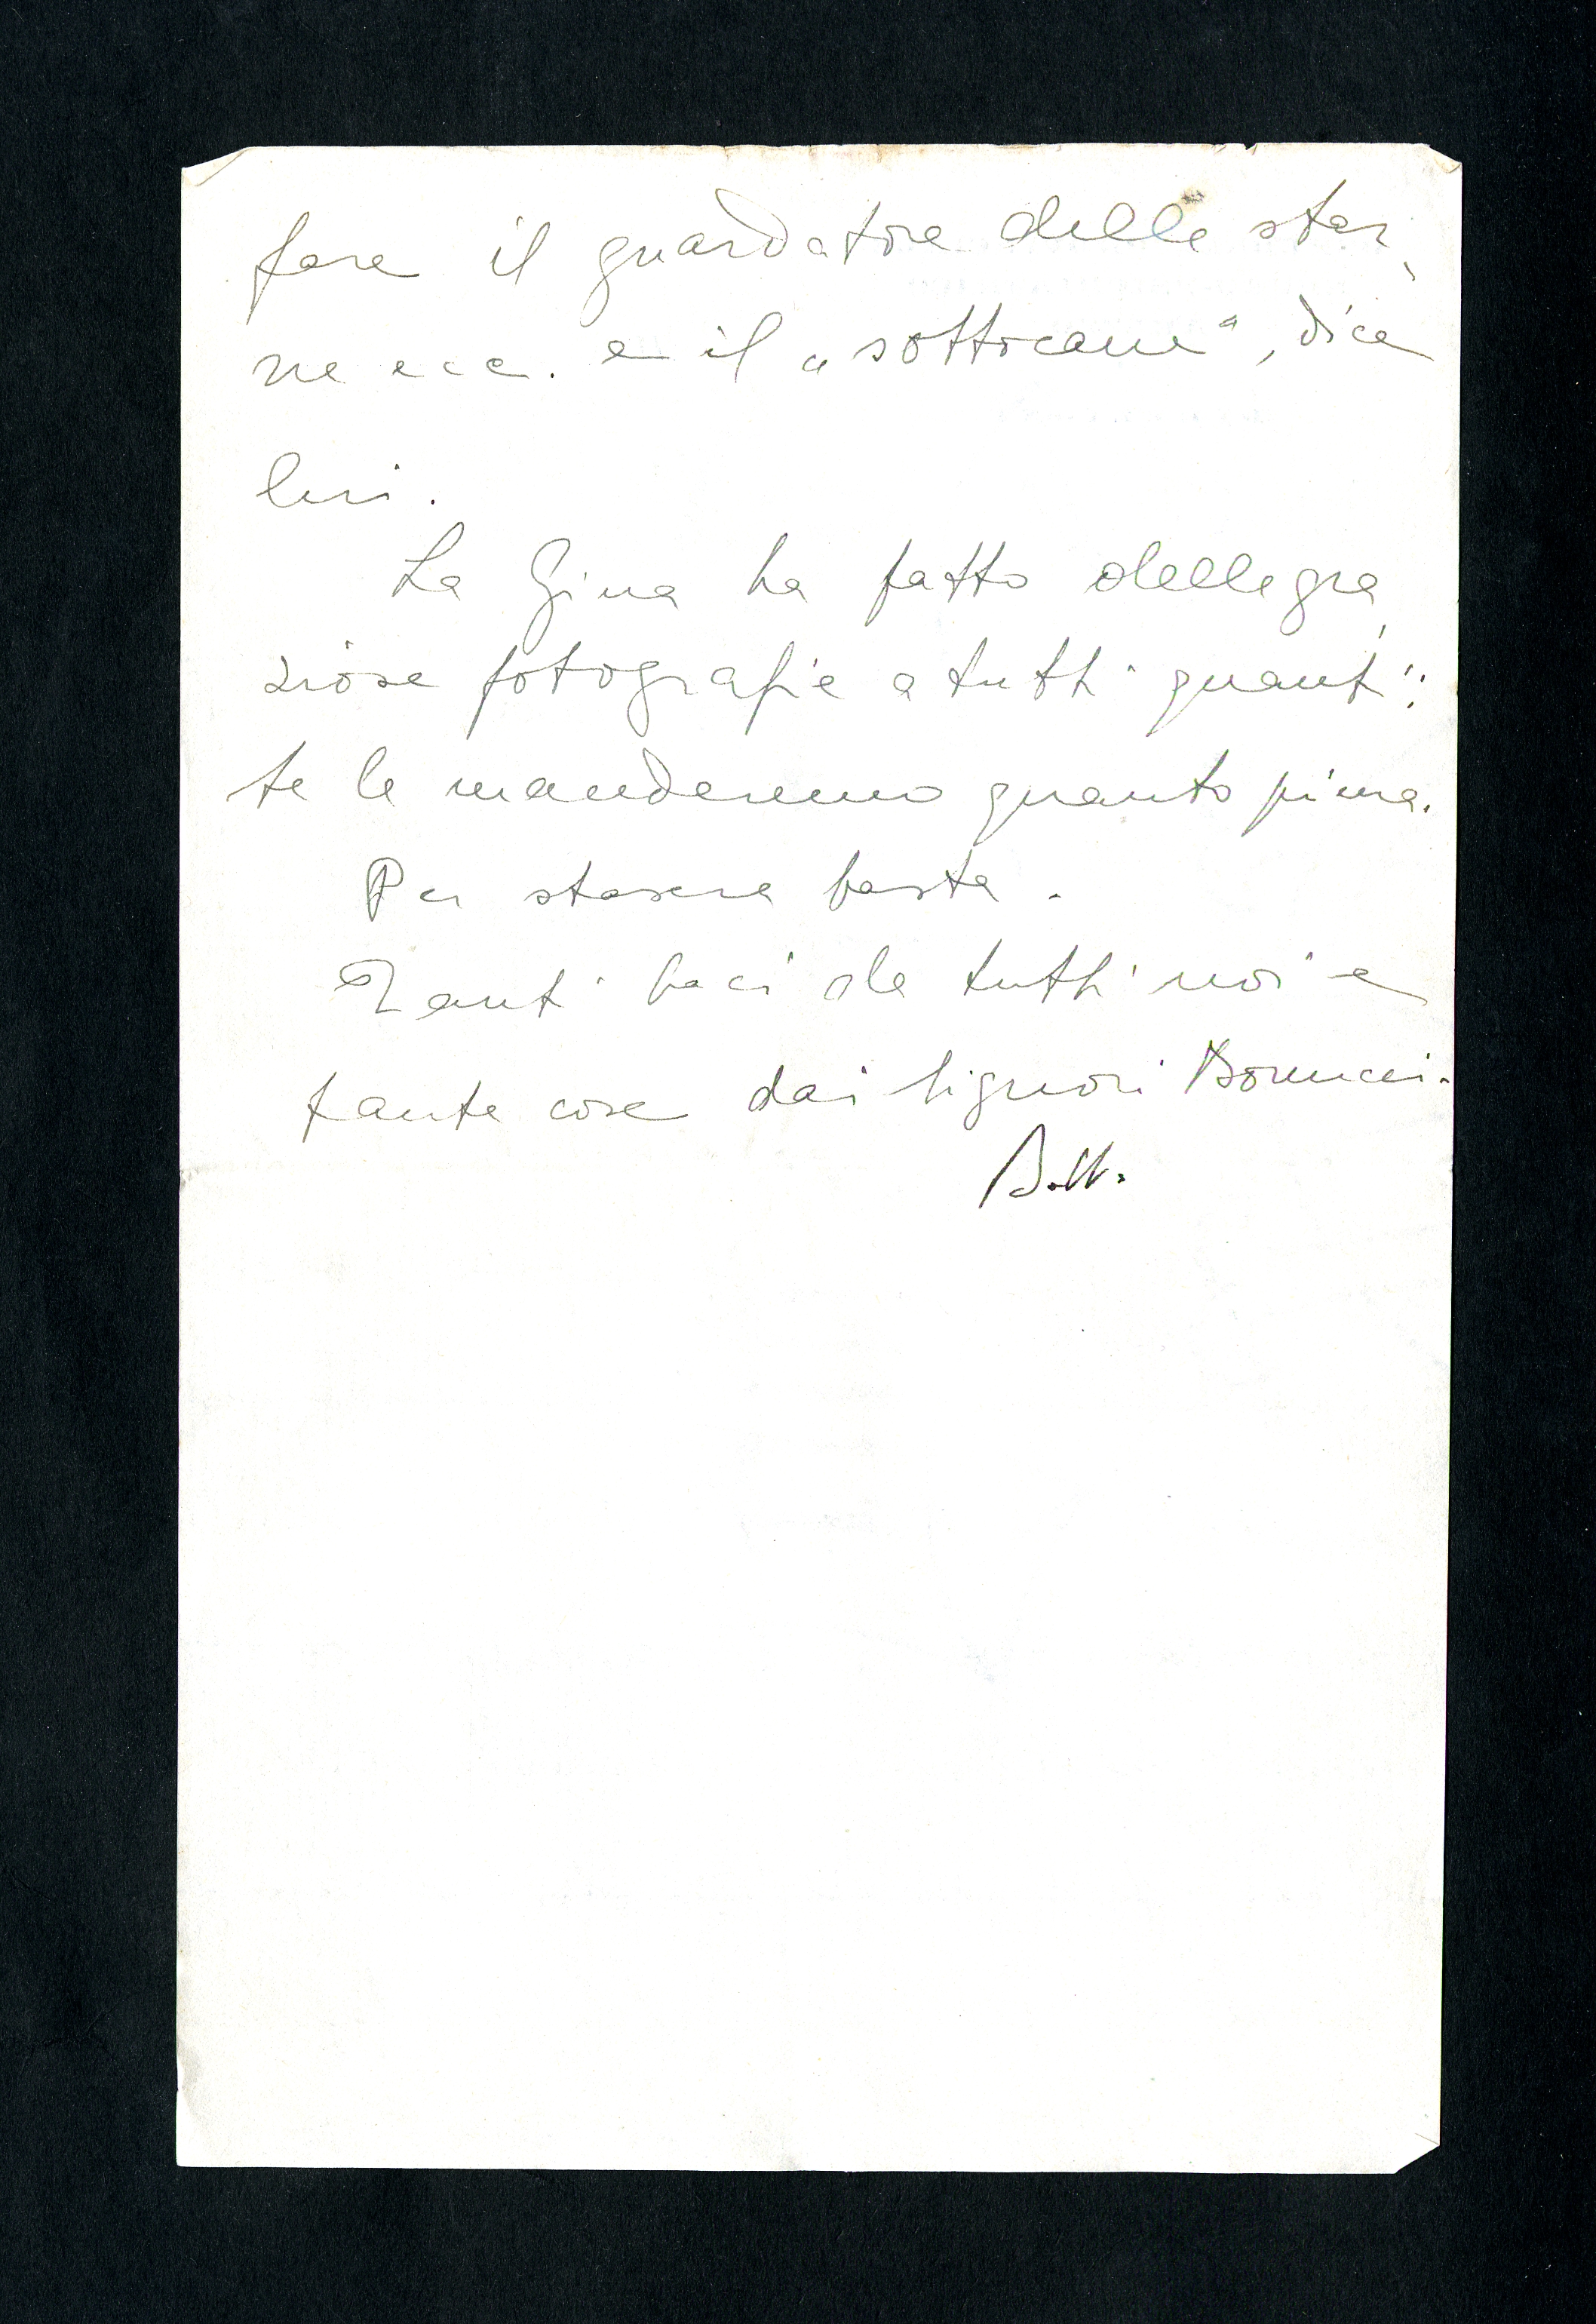 fare il guardatore delle star,
ne ecc. e il „sottocane“, dice
lui.
La Gina ha fatto delle gra,
ziose fotografie a tutti quanti;
te le manderemo quanto prima.
Per stasera basta.
Tanti baci da tutti noi e
tante cose dai Signori